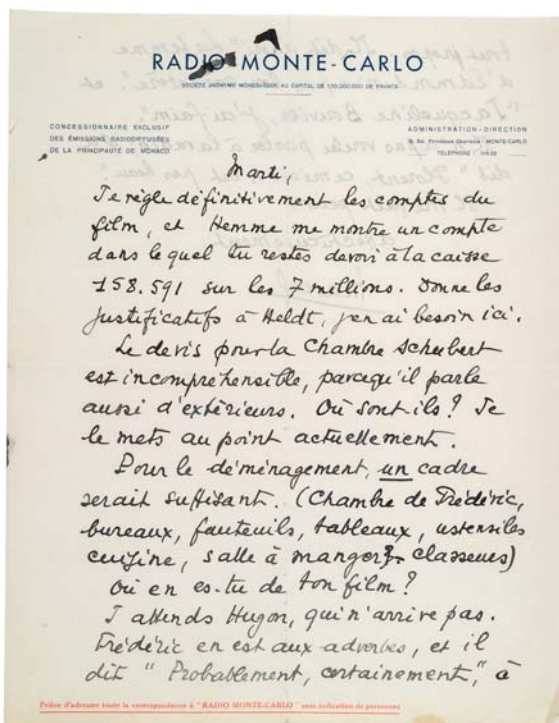 RADIO MONTE-CARLO
SOCIÉTÉ ANONYME MONÉGASQUE AU CAPITAL DE 100.000.000 DE FRANCS
CONCESSIONNAIRE EXCLUSIF
DES ÉMISSIONS RADIODIFFUSÉES
DE LA PRINCIPAUTÉ DE MONACO
ADMINISTRATION - DIRECTION
MONTE-CARLO
TÉLÉPHONE :
Marti,
Je règle définitivement les comptes du
film, et Hemme me montre un compte
dans lequel tu restes devoir à la caisse
158.591 sur les 7 millions. Donne les
justificatifs à Heldt, j'en ai besoin ici.
Le devis pour la Chambre Schubert
est incompréhensible, parcequ'il parle
aussi d'extérieurs. Où sont-ils ? Je
le mets au point actuellement.
Pour le déménagement, un cadre
serait suffisant. (Chambre de Frédéric,
bureaux, fauteuils, tableaux, ustensiles
cuisine, salle à manger classeurs)
Où en es-tu de ton film ?
J'attends Hugon, qui n'arrive pas.
Frédéric en est aux adverbes, et il
dit "Probablement, certainement," à
Prière d'adresser toute la correspondance à "RADIO MONTE-CARLO" sans indication de personnes